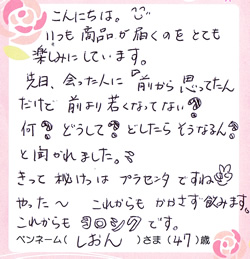 こんにちは。
いつも商品が届くのをとても
楽しみにしています。
先日、会った人に"前から思ってたん
だけど前より若くなってない?
何?どうして?どしたらそうなるん?
と聞かれました。
きっと秘けつはプラセンタですね
やった〜 これからもかかさず飲みます。
これからもヨロシクです。
ペンネーム( しおん )さま(47)歳